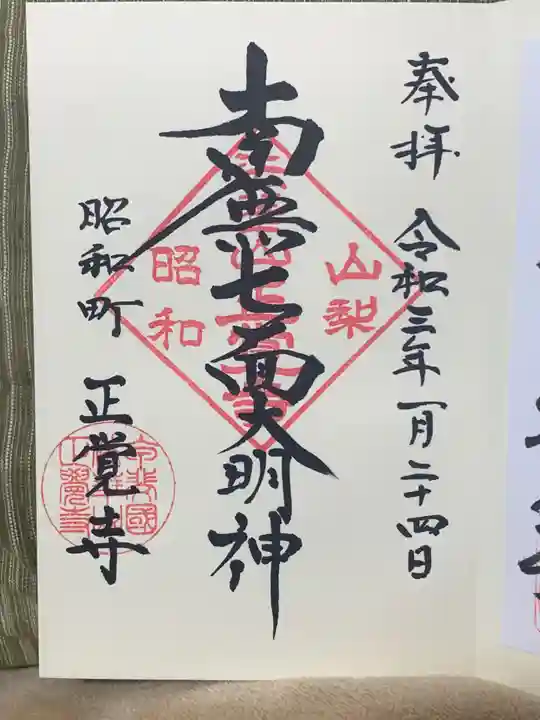 奉拝 令和三年一月二十四日
南無七面大明神
山梨
昭和
昭和町 正覚寺